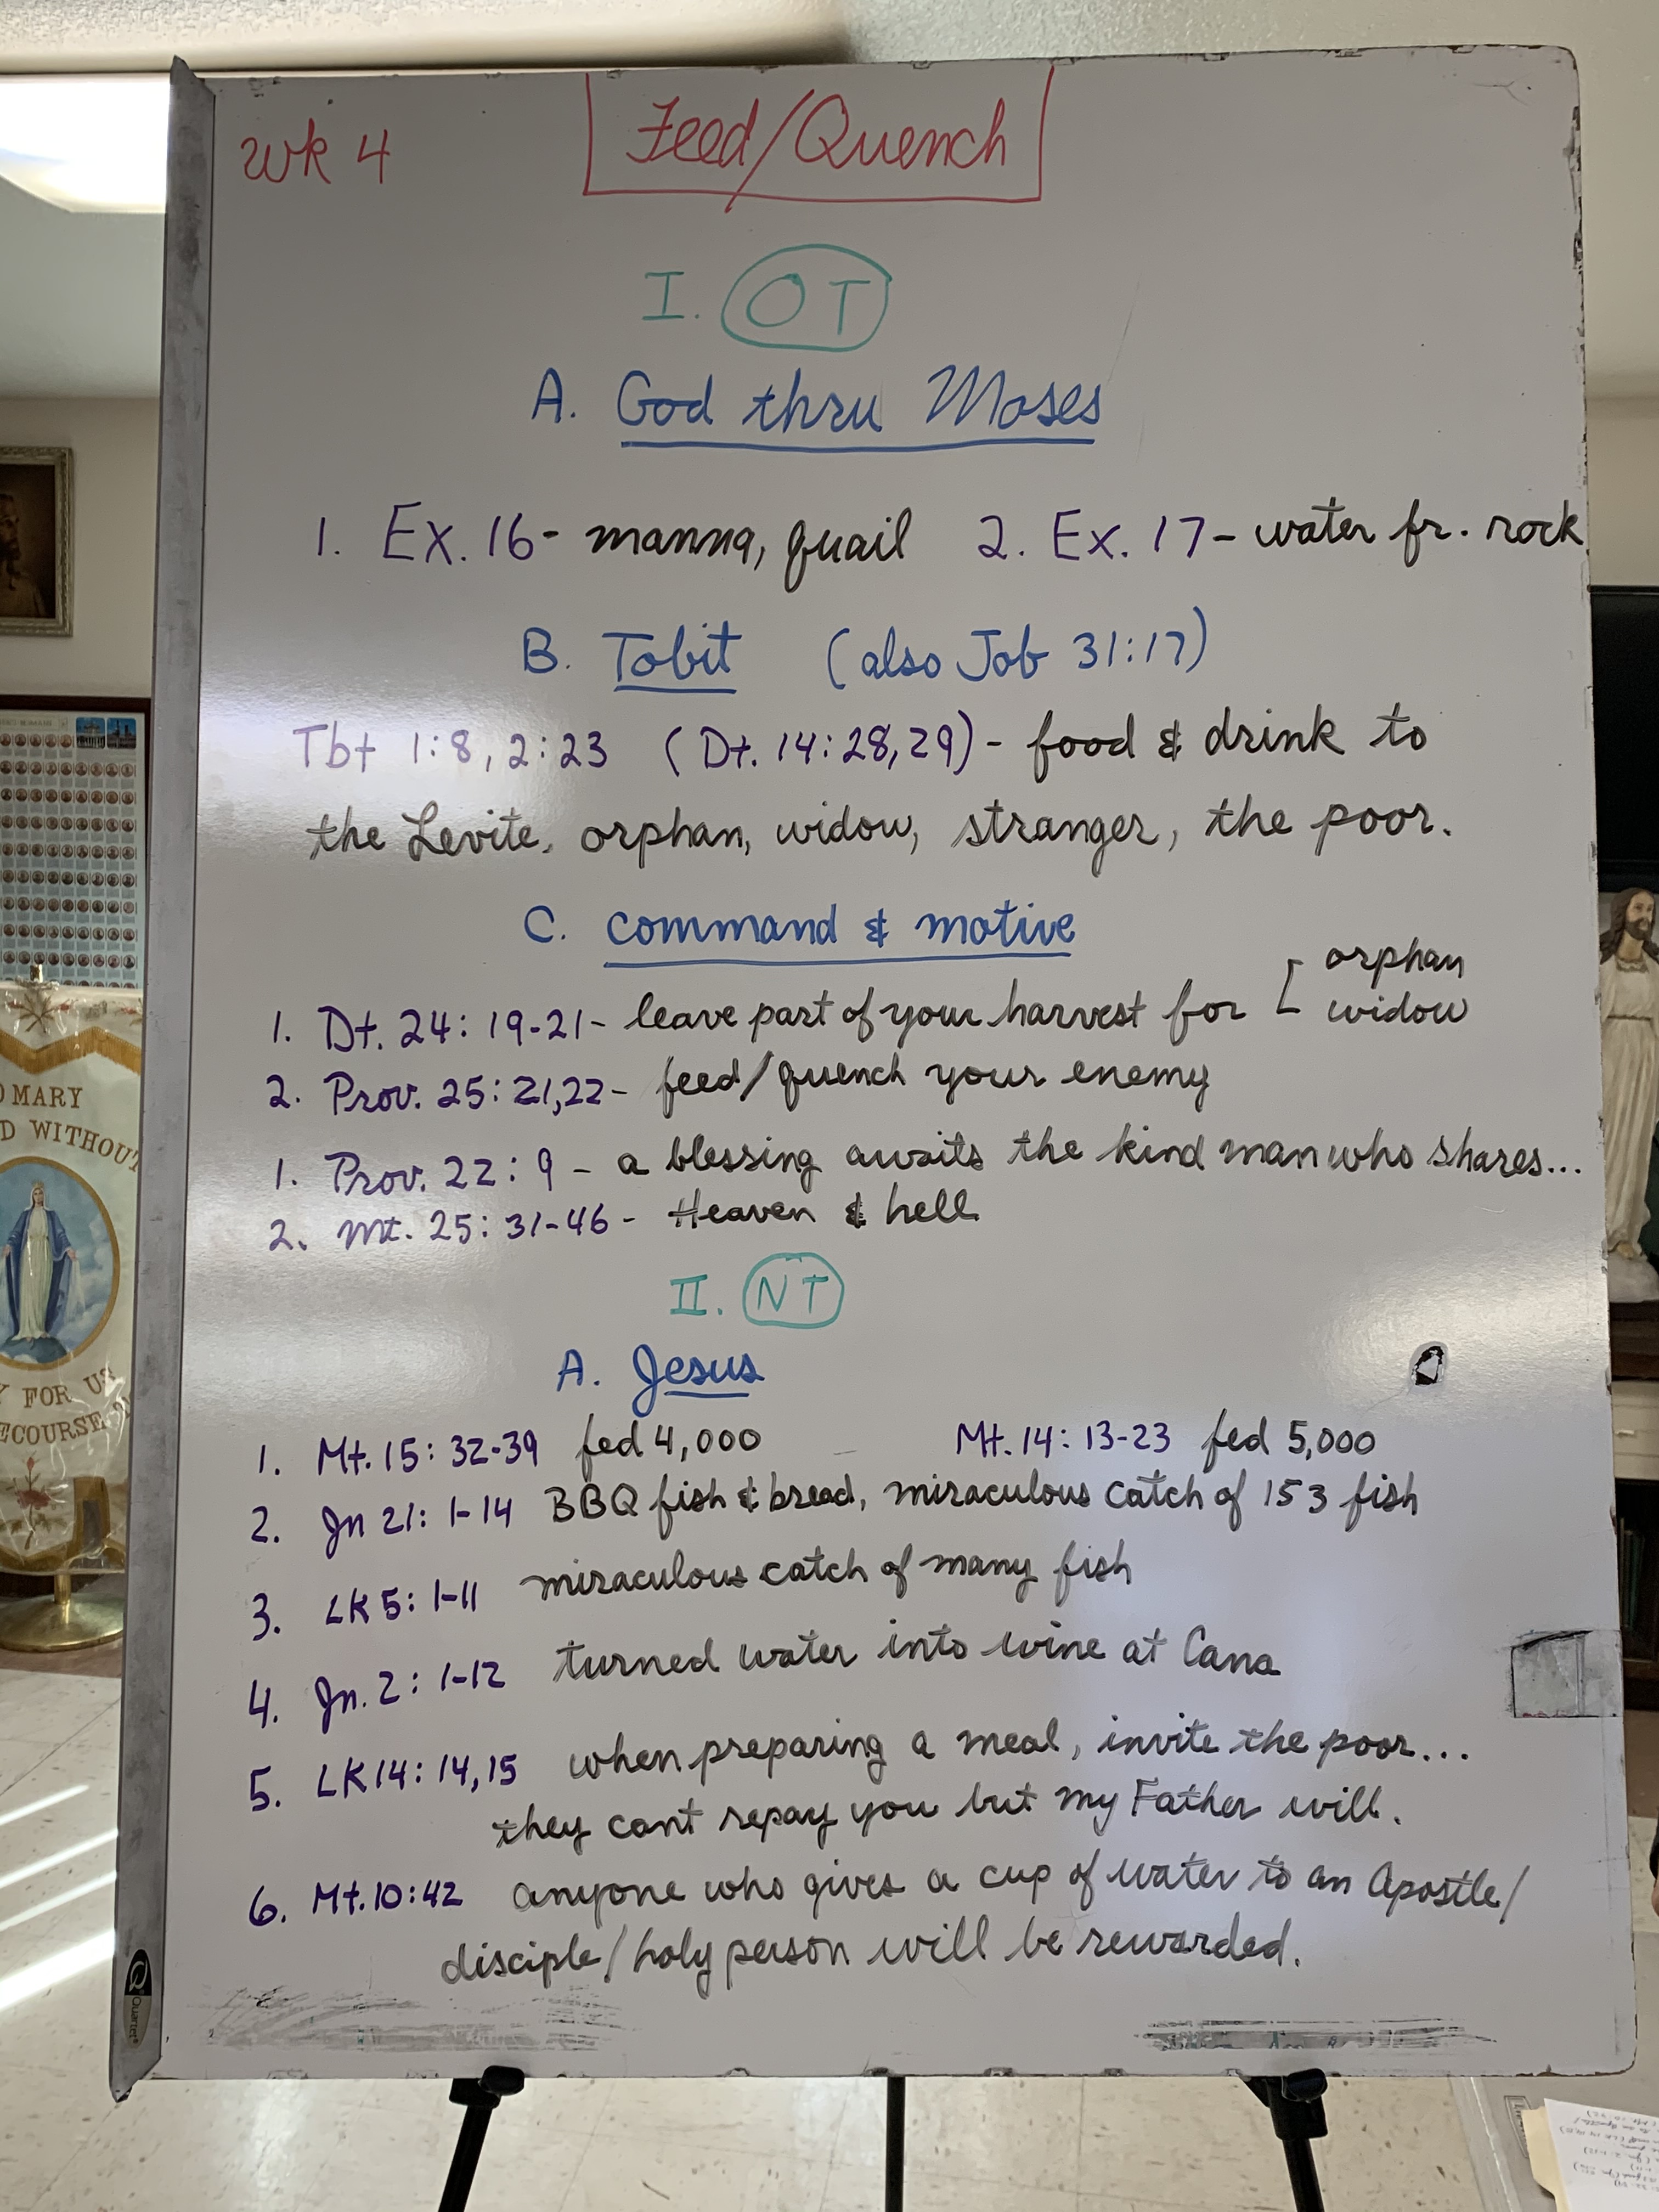 Wk 4
Feed/Quench
I. OT
A. God thru Moses
1. Ex. 16- manna, quail 2. Ex. 17- water fr. rock
B. Tobit (also Job 31:17)
Tbt 1:8, 2:23 (Dt. 14:28,29) - food & drink to
the Levite, orphan, widow, stranger, the poor.
C. command & motive
1. Dt. 24: 19-21- leave part of your harvest for [ orphan
widow
2. Prov. 25: 21,22- feed/quench your enemy
1. Prov. 22: 9 - a blessing awaits the kind man who shares...
2. Mt. 25: 31-46 - Heaven & hell
II. NT
A. Jesus
1. Mt. 15: 32-39 fed 4,000 Mt. 14: 13-23 fed 5,000
2. Jn 21: 1-14 BBQ fish & bread, miraculous catch of 153 fish
3. LK 5: 1-11 miraculous catch of many fish
4. Jn. 2: 1-12 turned water into wine at Cana
5. LK 14: 14,15 when preparing a meal, invite the poor...
they cant repay you but my Father will.
6. Mt. 10:42 anyone who gives a cup of water to an Apostle/
disciple/holy person will be rewarded.
Quartet
MARY
D WITHOUT
Y FOR US
ECOURSE